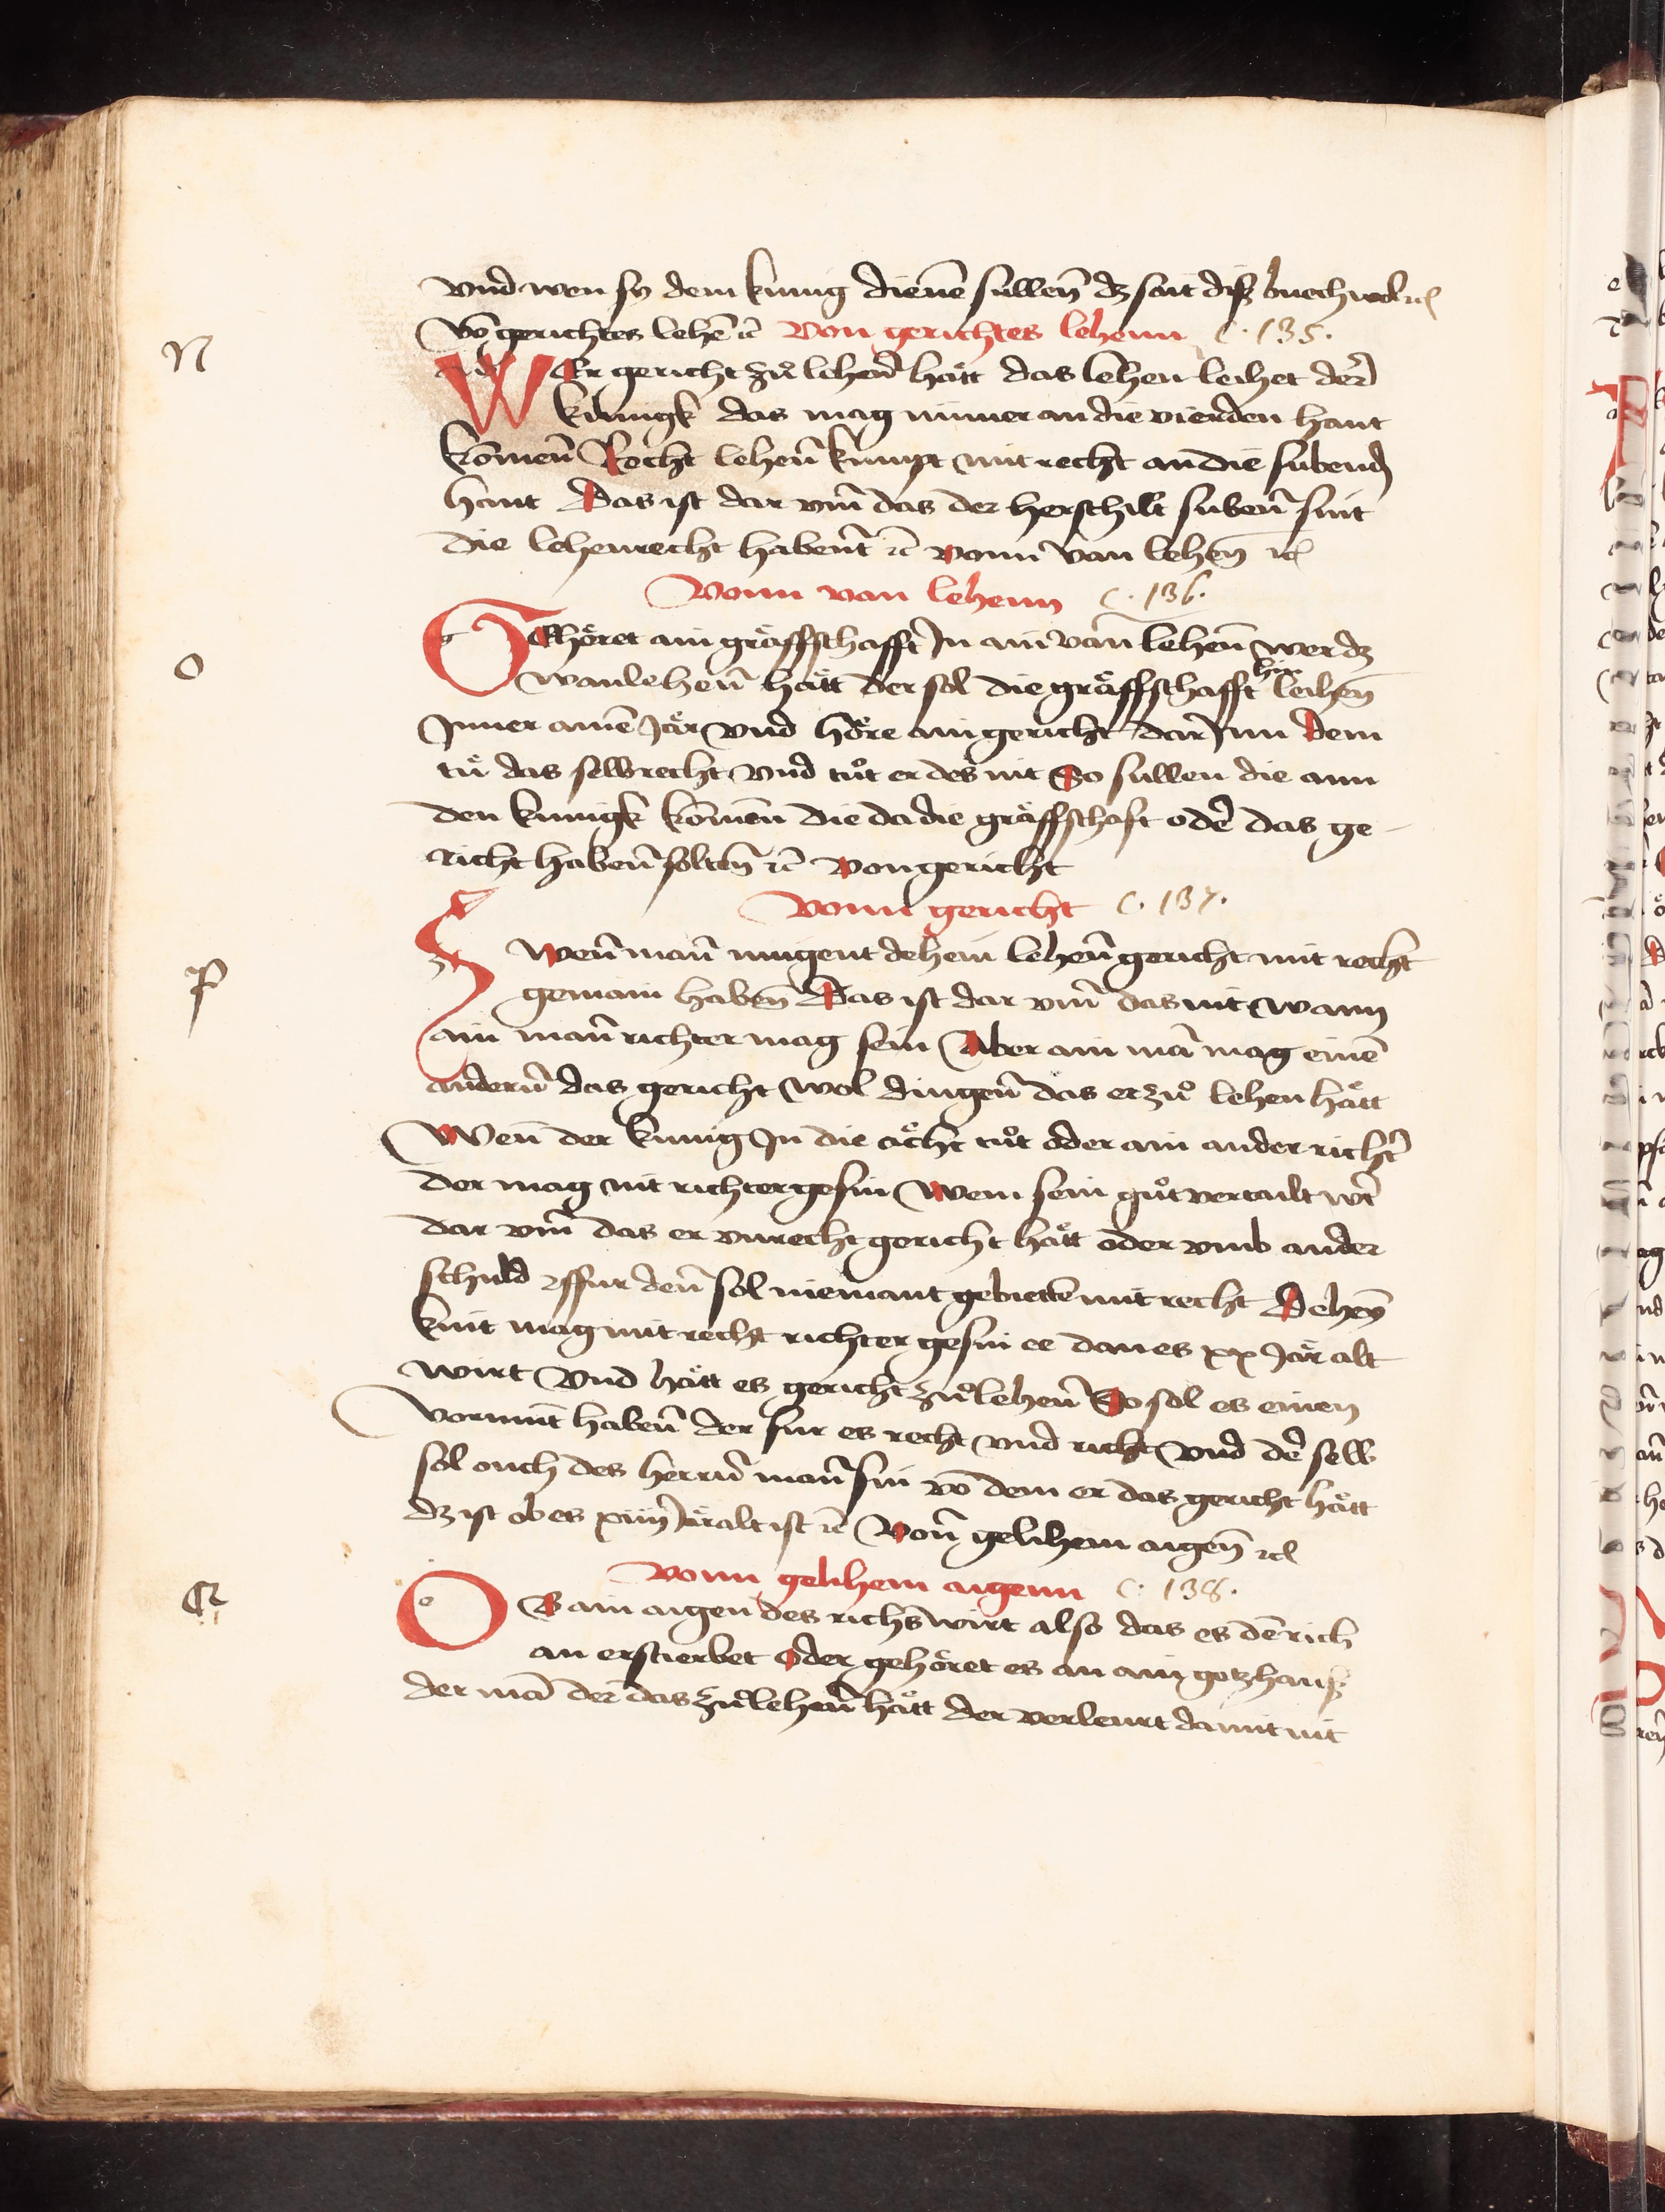 vnd wen sy dem kunig dienē sullen̄ dz sait disz buech wol ꝛc
vō gerichtes lehē ꝛc Von gerichtes lehenn c. 135.
N
WEr gericht zů lehen̄ hått das lehen leihet der̄
kůnigk das mag nimer an die vierden hant
komen̄ Recht lehen̄ kumpt mit recht an die subend
hant Das ist dar vm̄ das der herschilt suben̄ sint
die lehenrecht habent̄ ꝛc vonn van lehen̄ ꝛc
Vonn van lehenn c. 136.
O
GEhőret ain gråffschafft Jn ain van̄ lehen̄ wer dz
vanlehen̄ hått der sol die gråffschafft hin leihen̄
Jnner ainē Jår vnd hőre ain gericht dar Jnn dem
tů das selb recht vnd tůt er des nit So sullen die ann
den kunigk komen̄ die da die gråffschaft oder̄ das ge-
richt haben̄ solten̄ ꝛc von gericht
Vonn gericht c. 137.
P
Zwen̄ man̄ mugent dehein lehen̄ gericht mit recht
gemain haben̄ Das ist dar vm̄ das nit wann
ain man̄ richter mag sein Aber ain mā mag einē
andern̄ das gericht wol dingen̄ das er zů lehen hått
Wen̄ der kunig Jn die åcht tůt oder ain ander richt̄
der mag nit richter gesin Wem sein gůt vertailt wt̄
dar vm̄ das er vnrecht gericht hått oder vmb ander
schuld fur den̄ sol niemant gebietten mit recht Dehein̄
kint mag mit recht richter gesin ee dan es xx Jår alt
wirt Vnd hått es gericht zů lehen̄ So sol es einen
vormunt haben̄ der fur es recht vnd richt vnd der̄ selb
sol ouch des herrn̄ man̄ sin vō dem er das gericht hått
dz ist ob es xiiij Jår alt ist ꝛc Von̄ gelihem aigen̄ ꝛc
Vonn gelihem aigenn c. 138.
Q
OB ain aigen des richs wirt also das es dē rich
an erstierbet oder gehőret es an ain gotzhausz
der mā der das zů lehen̄ hått der verleurt damit nit